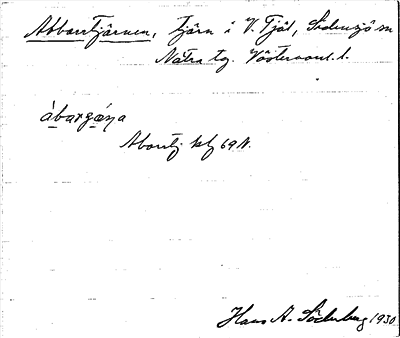 Abborrtjärnen, tjärn i V. Fjäl, Sidensjö sn
Nätra tg. Västernorrl. l.
àbaṛgáṇa
Aborrtj kbf 69 N.
Hans A. Söderberg 1930